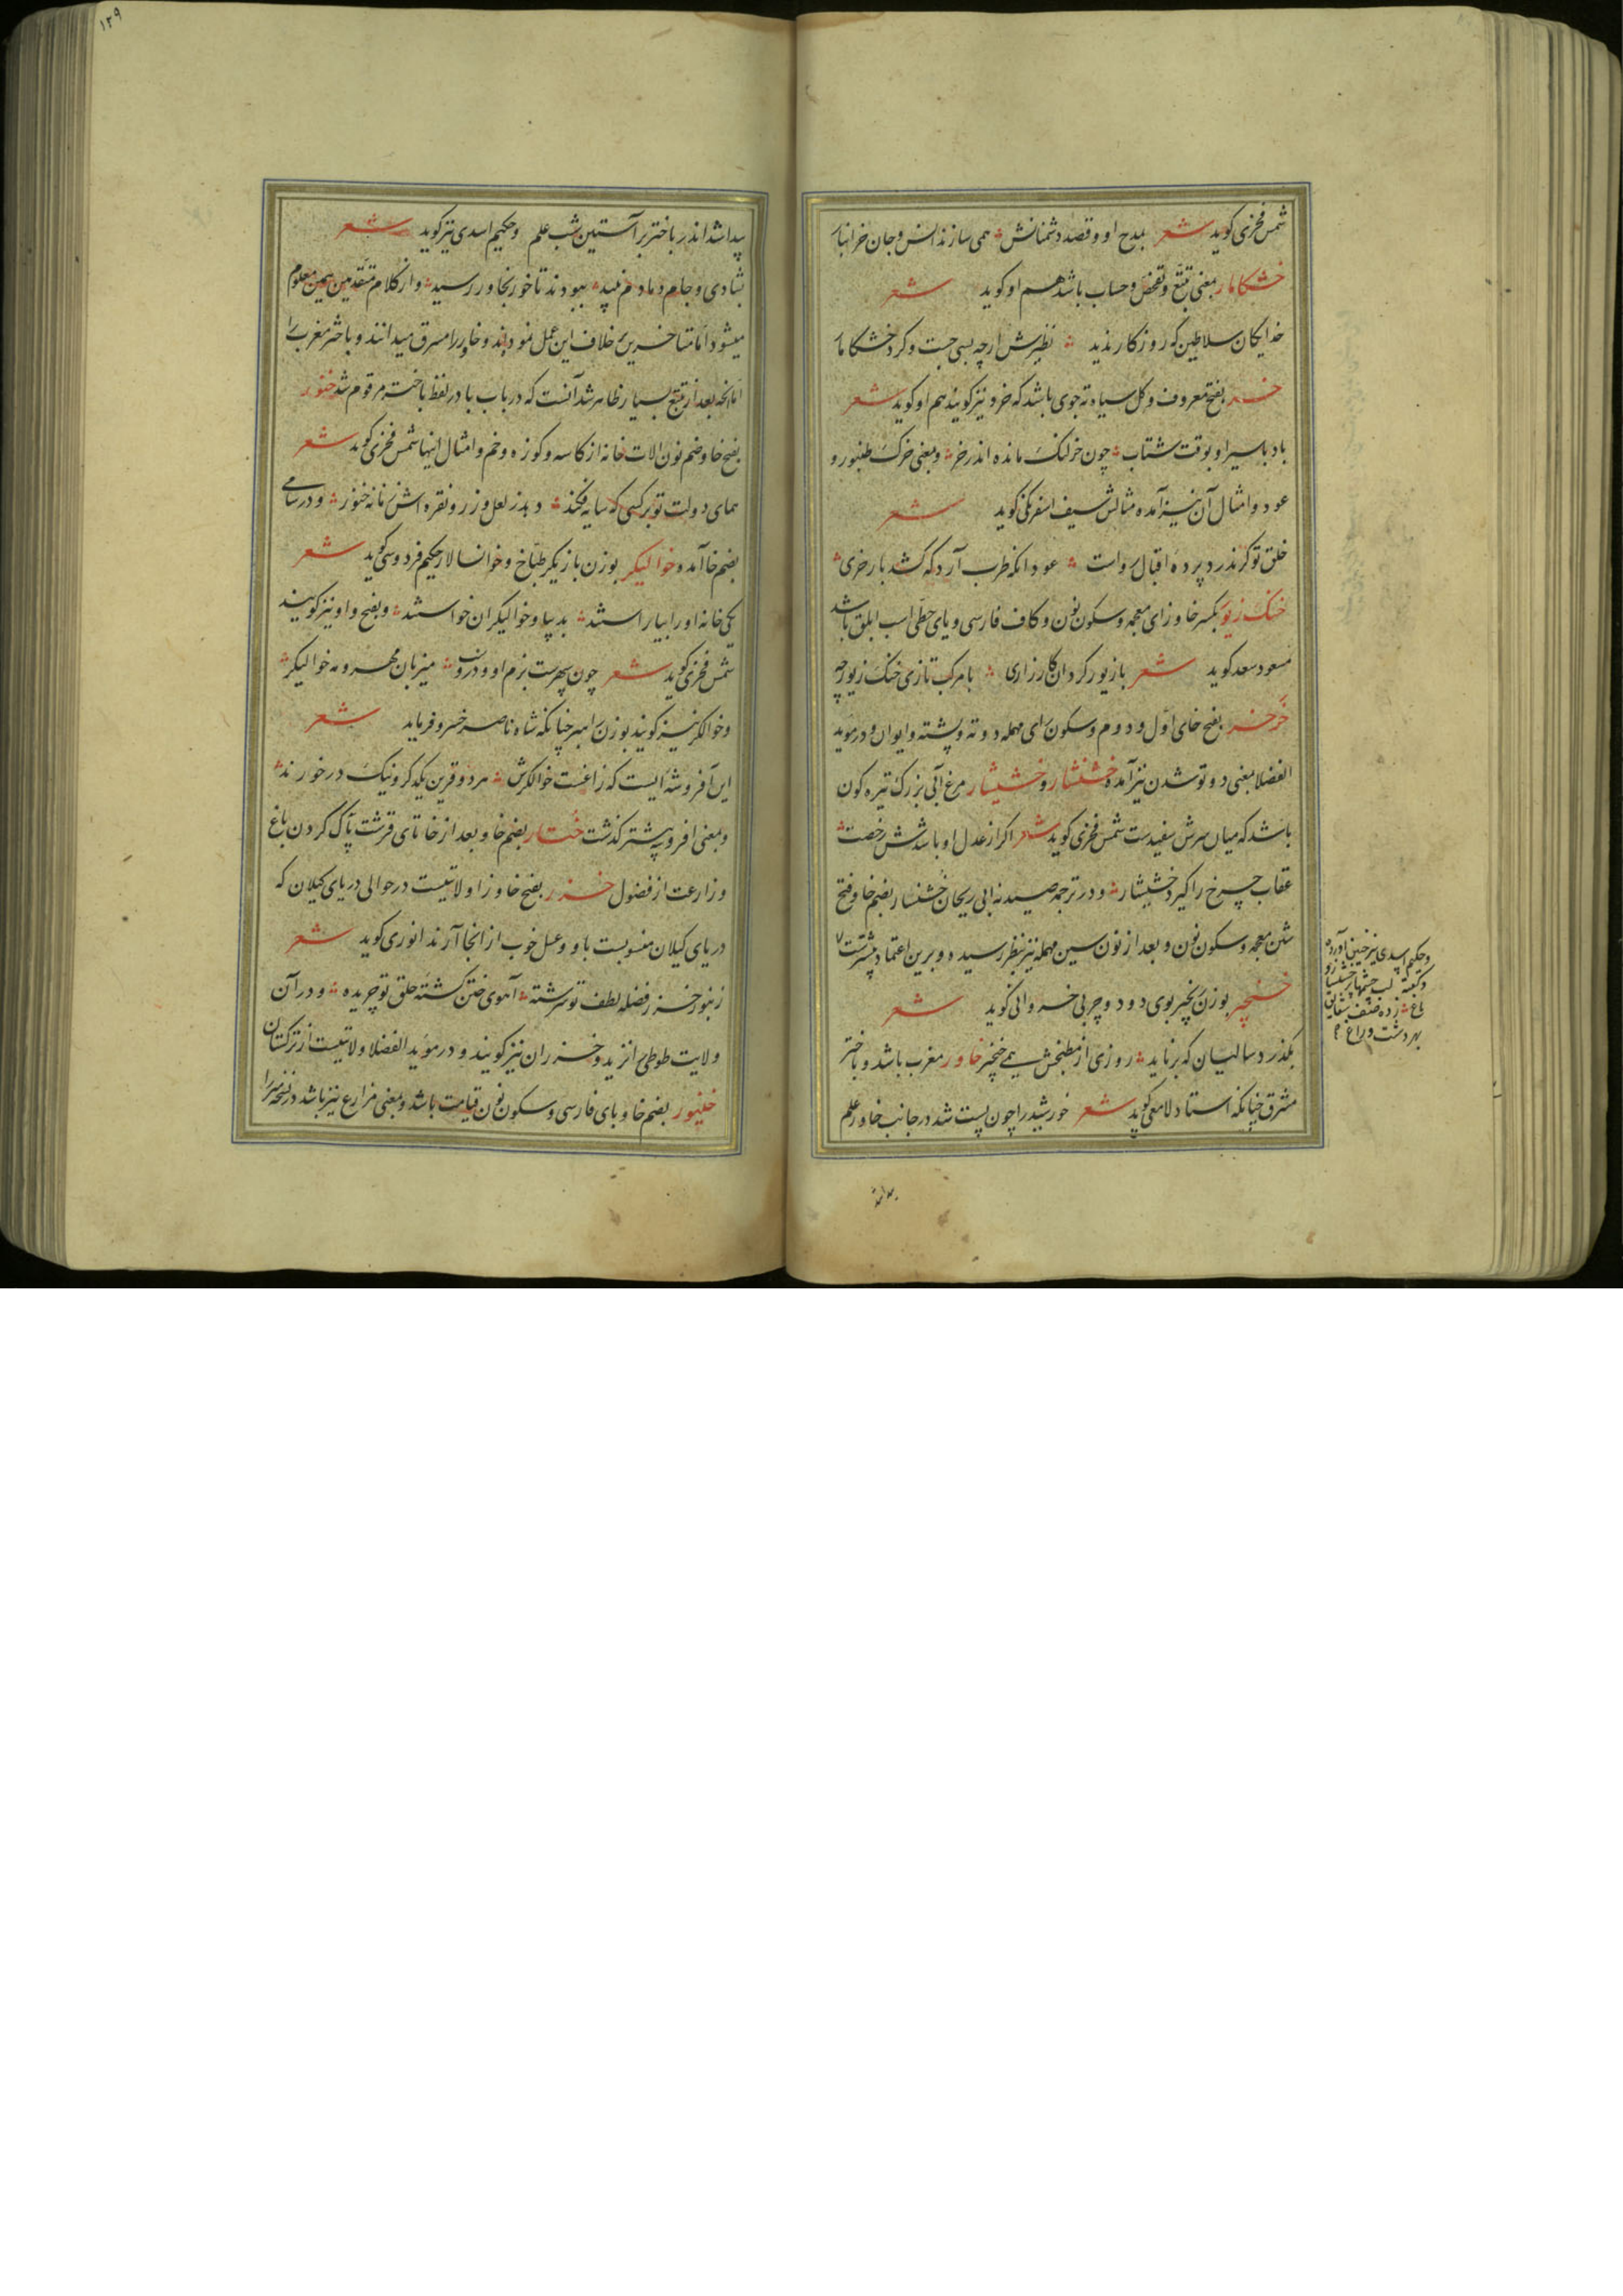 شمس فخری کوید شعر بمدح او و قصد دشمنانش همی سازند انس و جان خرانبار
خشکامار بمعنی تتبع و تفحص و حساب باشد هم او کوید شعر
خدایکان سلاطین که روزکار ندید نظیرش ارچه بسی جست و کرد خشکامار
خر بفتح معروف و کل سیاه ته جوی باشد که خره نیز کویند هم او کوید شعر
باد با سیر او بوقت شتاب چون خر لنک مانده اندر خر و بمعنی خرک طنبور و
عود و امثال آن نیز آمده مثالش سیف اسفرنکی کوید شعر
خلق تو کر ندرد پرده اقبال رواست عود آنکه طرب آرد که کشد بار خری
خنک زیور بکسر خا و زای معجمه و سکون نون و کاف فارسی و یای حطی اسب ابلق باشد
مسعود سعد کوید شعر با زیور کردان کارزاری با مرکب تازی خنک زیور چه
خرخر بفتح خای اول و دوم و سکون رای مهمله دو ته و پشته و ایوان و در موید
الفضلا بمعنی دو تو شدن نیز آمده خشنشار و خشیشار مرغ آبی بزرک تیره کون
باشد که میان سرش سفیدست شمس فخری کوید شعر اکر از عدل او باشدش رخصت
عقاب چرخ را کیرد خشیشار و در ترجمه صیدنه ابی ریحان خشنسار بضم خا و فتح
شین معجمه و سکون نون و بعد از نون سین مهمله نیز بنظر رسیده و برین اعتماد بیشترست
خنجیر بوزن نخجیر بوی دود و چربی خسروانی کوید شعر
بکذرد سالیان که برناید روزی از مطبخش همی خنجیر خاور مغرب باشد و باختر
مشرق چنانکه استاد لامعی کوید شعر خورشید را چون پست شد در جانب خاور علم
و حکیم اسدی نیز چنین آورده
لب چشمها پر خشنسار و
ماغ زده صف
بهر دشت و راغ
۱۲۹
پیدا شد اندر باختر بر آستین شب علم و حکیم اسدی نیز کوید شعر
بشادی و جام دمادم نبید ببودند تا خور بخاور رسید و از کلام متقدمین همین معلوم
میشود اما متاخرین خلاف این عمل نموده‌اند و خاور را مشرق میدانند و باختر مغرب را
اما آنچه بعد از تتبع بسیار ظاهر شد آنست که در باب با در لفظ باختر مرقوم شد خنور
بفتح خا و ضم نون الات خانه از کاسه و کوزه و خم و امثال اینها شمس فخری کوید شعر
همای دولت تو بر کسی که سایه فکند دهد ز لعل و زر و نقره اش زمانه خنور و در سامی
بضم خا آمد و خوالیکر بوزن بازیکر طباخ و خوانسالار حکیم فردوسی کوید شعر
یکی خانه او را بیاراستند بدیبا و خوالیکران خواستند و بفتح واو نیز کویند
شمس فخری کوید شعر چون سپهرست بزم او و دروست میزبان مهر و مه خوالیکر
و خوالکر نیز کویند بوزن رامبر چنانکه شاه ناصر خسرو فرماید شعر
این آفروشه ایست که زاغست خوالکرش هر دو قرین یکدکر و نیک در خورند
و بمعنی افروشه پیشتر کذشت ختار بضم خا و بعد از خا تای قرشت پاک کردن باغ
و زراعت از فضول خزر بفتح خا و زا ولایتیست در حوالی دریای کیلان که
دریای کیلان منسوبست باو و عسل خوب از انجا آرند انوری کوید شعر
زنبور خزر فضله لطف تو سرشته آهوی ختن کشته خلق تو چریده و در آن
ولایت طوطی نزید و خزران نیز کویند و در موید الفضلا ولایتیست از ترکستان
خنپور بضم خا و بای فارسی و سکون نون قیامت باشد و بمعنی مزارع نیز باشد در نسخه میرزا